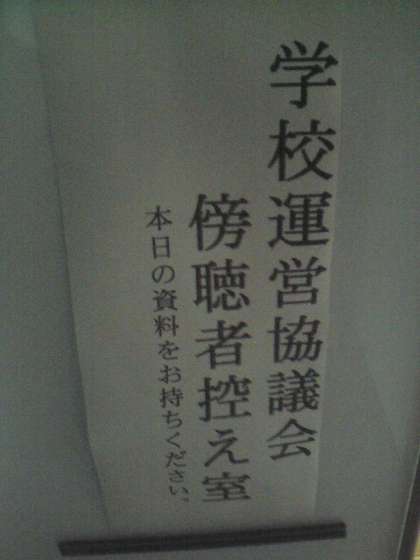 学校運営協議会
傍聴者控え室
本日の資料をお持ちください。